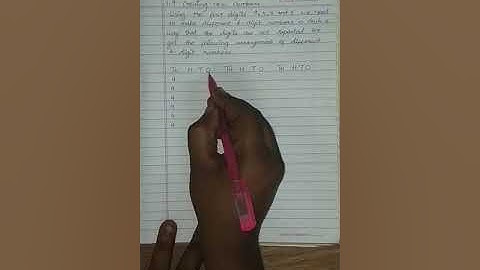 1.4 Creating new numbers
Using the four digits 4, 3, 2 and 5 we need
to make different 4 digit numbers in such a
way that the digits are not repeated we
get the following arrangement of different
4 digit numbers
Th H T O Th H T O Th H T O
4
4
4
4
4
4